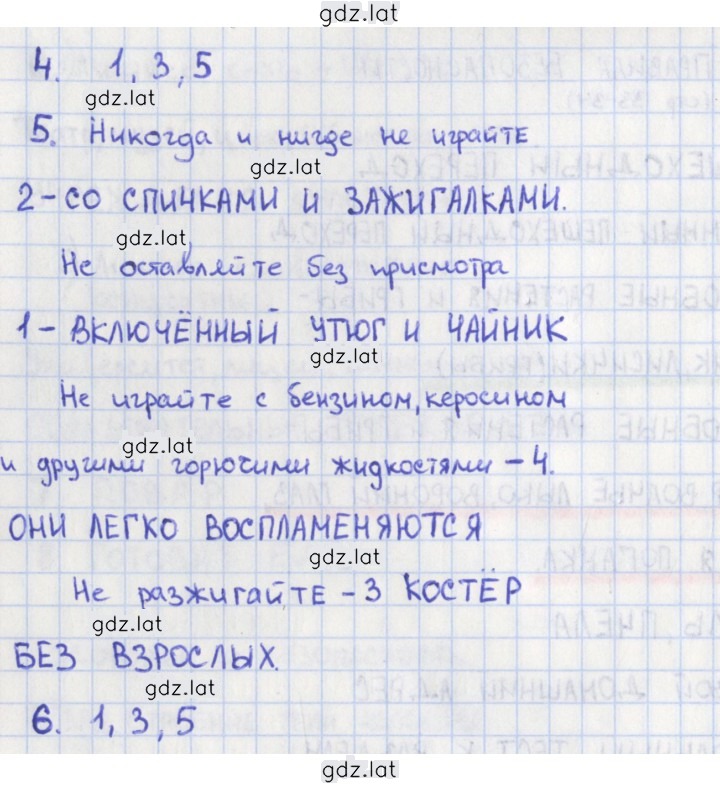 gdz.lat
4. 1, 3, 5
gdz.lat
5. Никогда и нигде не играйте
gdz.lat
2 – СО СПИЧКАМИ И ЗАЖИГАЛКАМИ.
gdz.lat
Не оставляйте без присмотра
1 – ВКЛЮЧЁННЫЙ УТЮГ И ЧАЙНИК
gdz.lat
Не играйте с бензином, керосином
gdz.lat
и другими горючими жидкостями – 4.
ОНИ ЛЕГКО ВОСПЛАМЕНЯЮТСЯ
gdz.lat
Не разжигайте – 3 КОСТЁР
gdz.lat
БЕЗ ВЗРОСЛЫХ.
gdz.lat
6. 1, 3, 5
gdz.lat